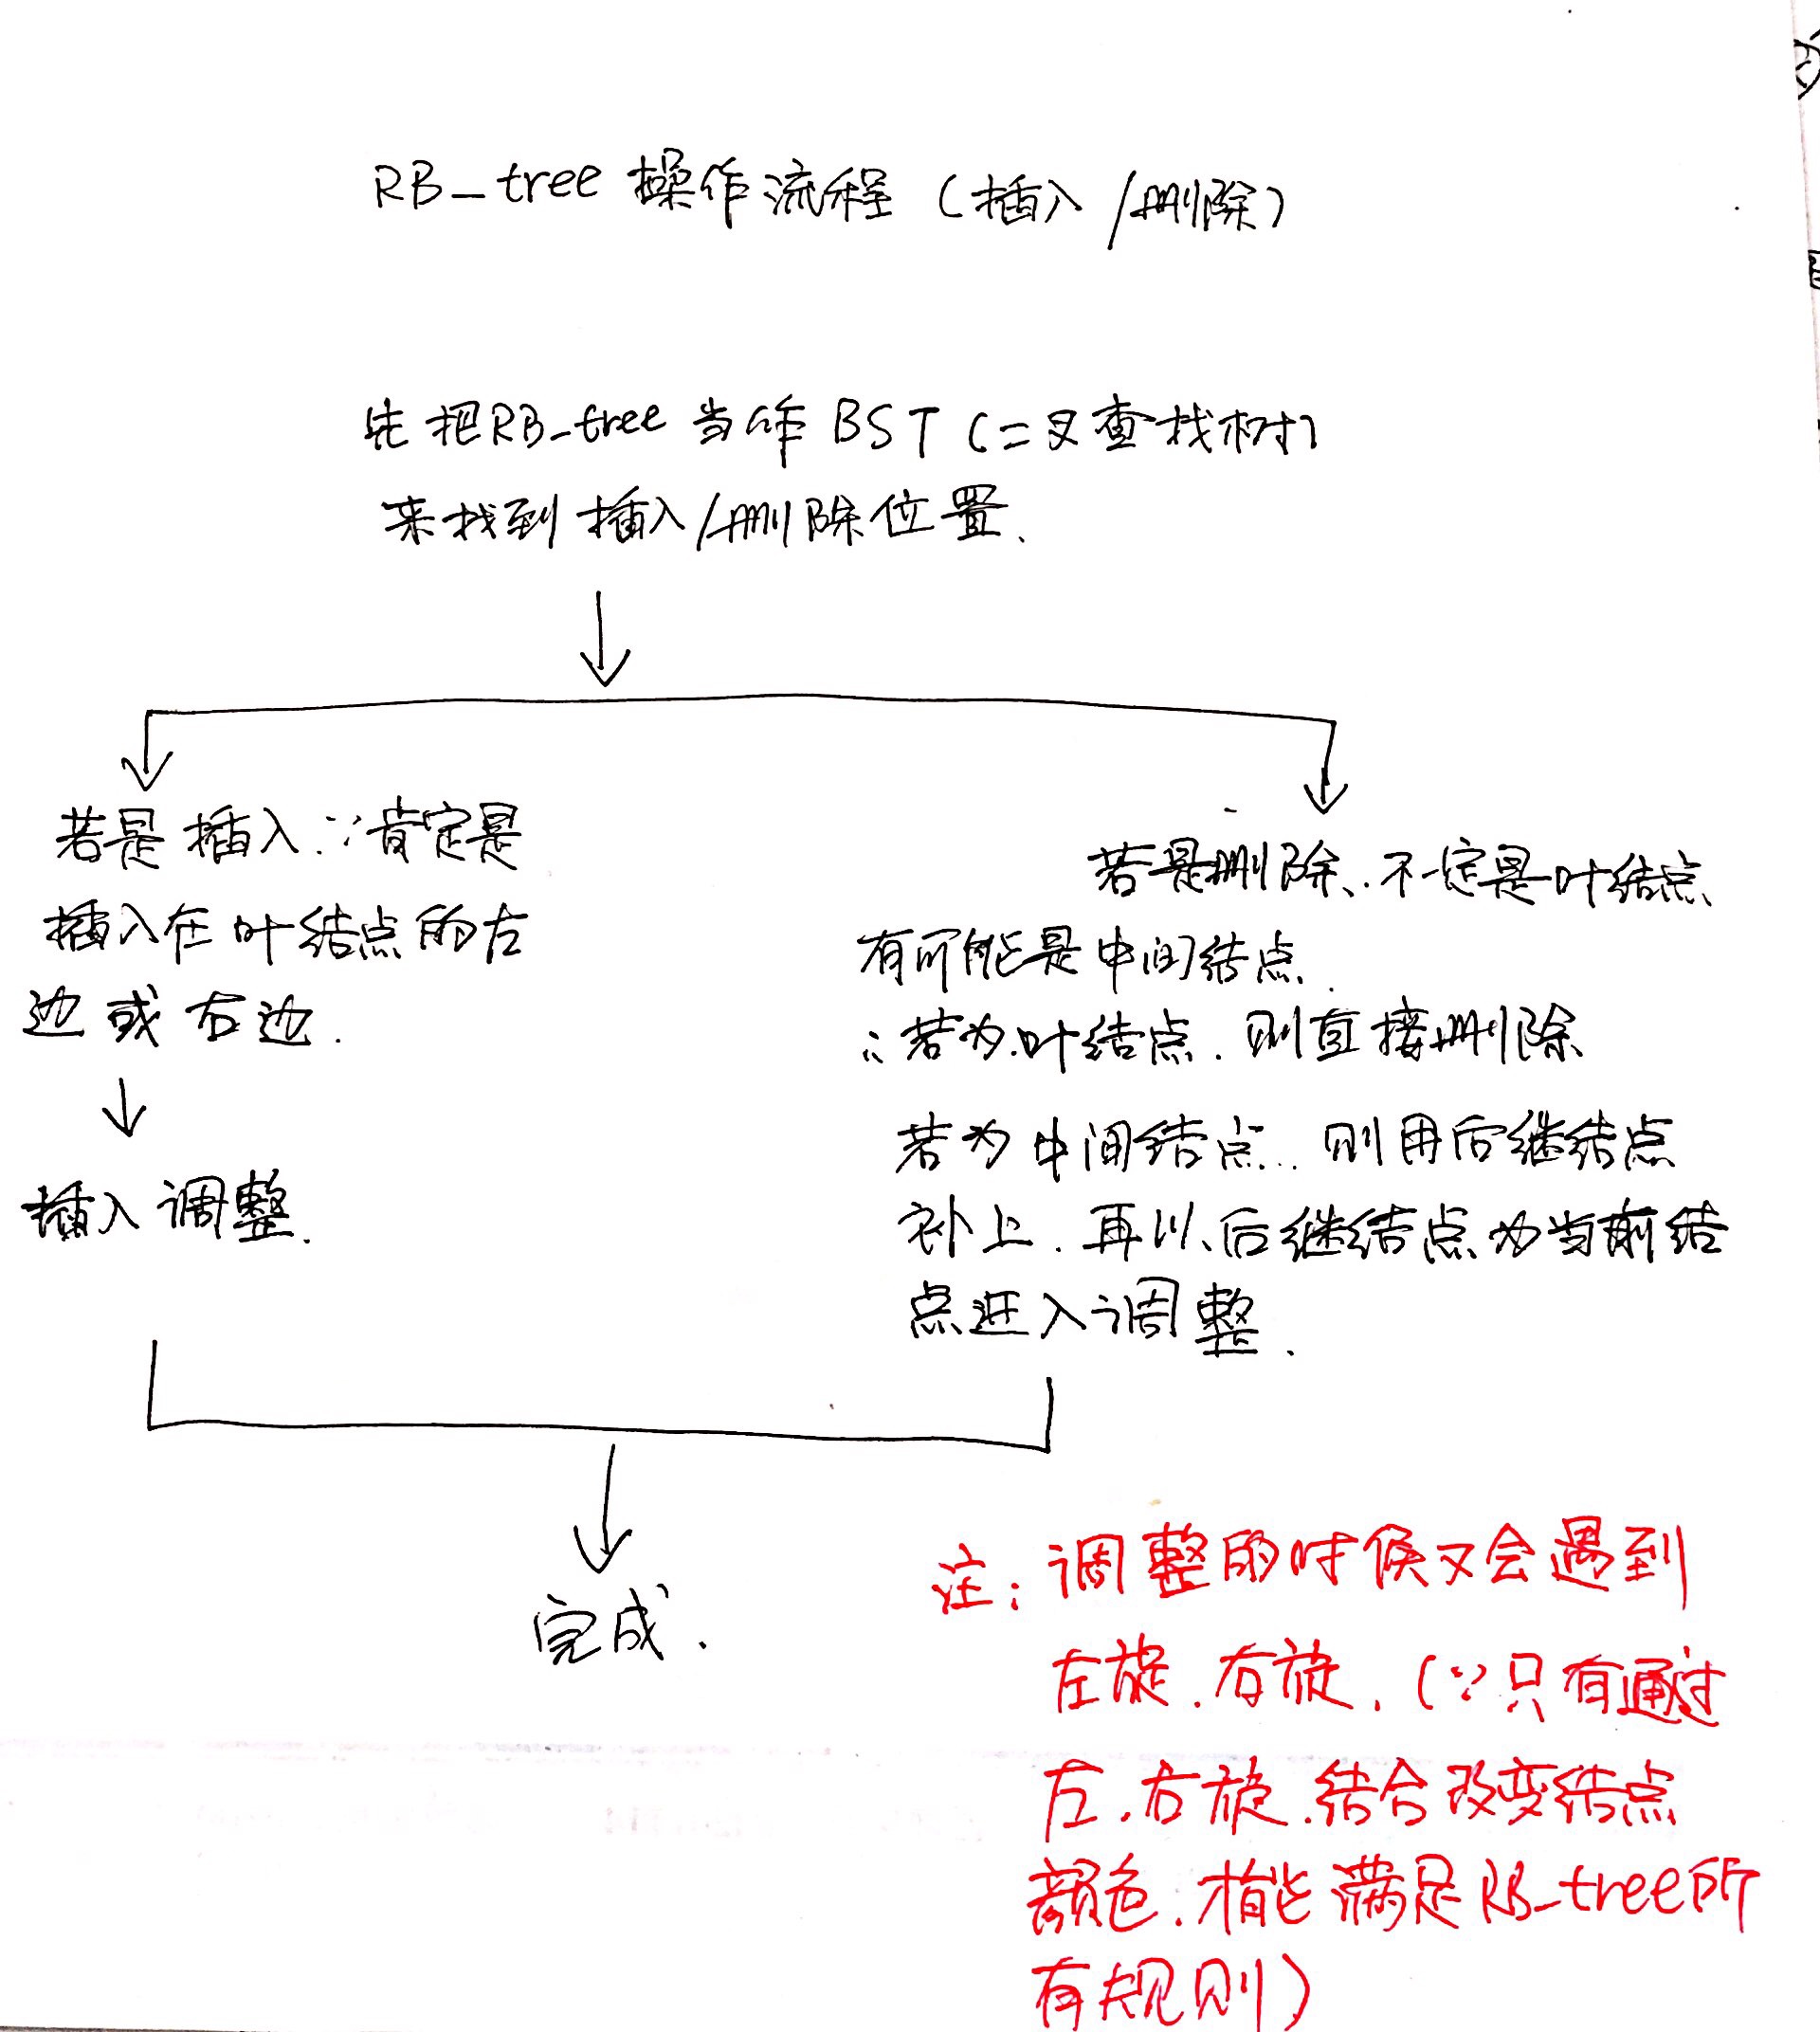 RB_tree 操作流程（插入/删除）
先把RB_tree 当作 BST（二叉查找树）
来找到插入/删除位置.
若是插入∵肯定是
插入在叶结点的左
边或右边.
插入调整.
若是删除、不一定是叶结点
有可能是中间结点.
∴若为叶结点.则直接删除
若为中间结点…则用后继结点
补上.再以后继结点为当前结
点进入调整.
完成.
注:调整的时候又会遇到
左旋.右旋.(∵只有通过
左.右旋.结合改变结点
颜色.才能满足RB_tree所
有规则)